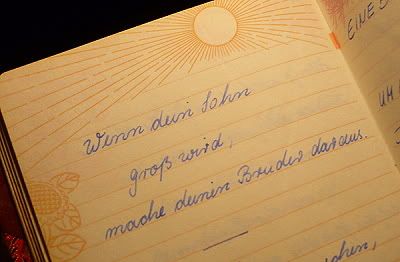 Wenn dein Sohn
groß wird,
mache deinen Bruder daraus.
EINE
UM